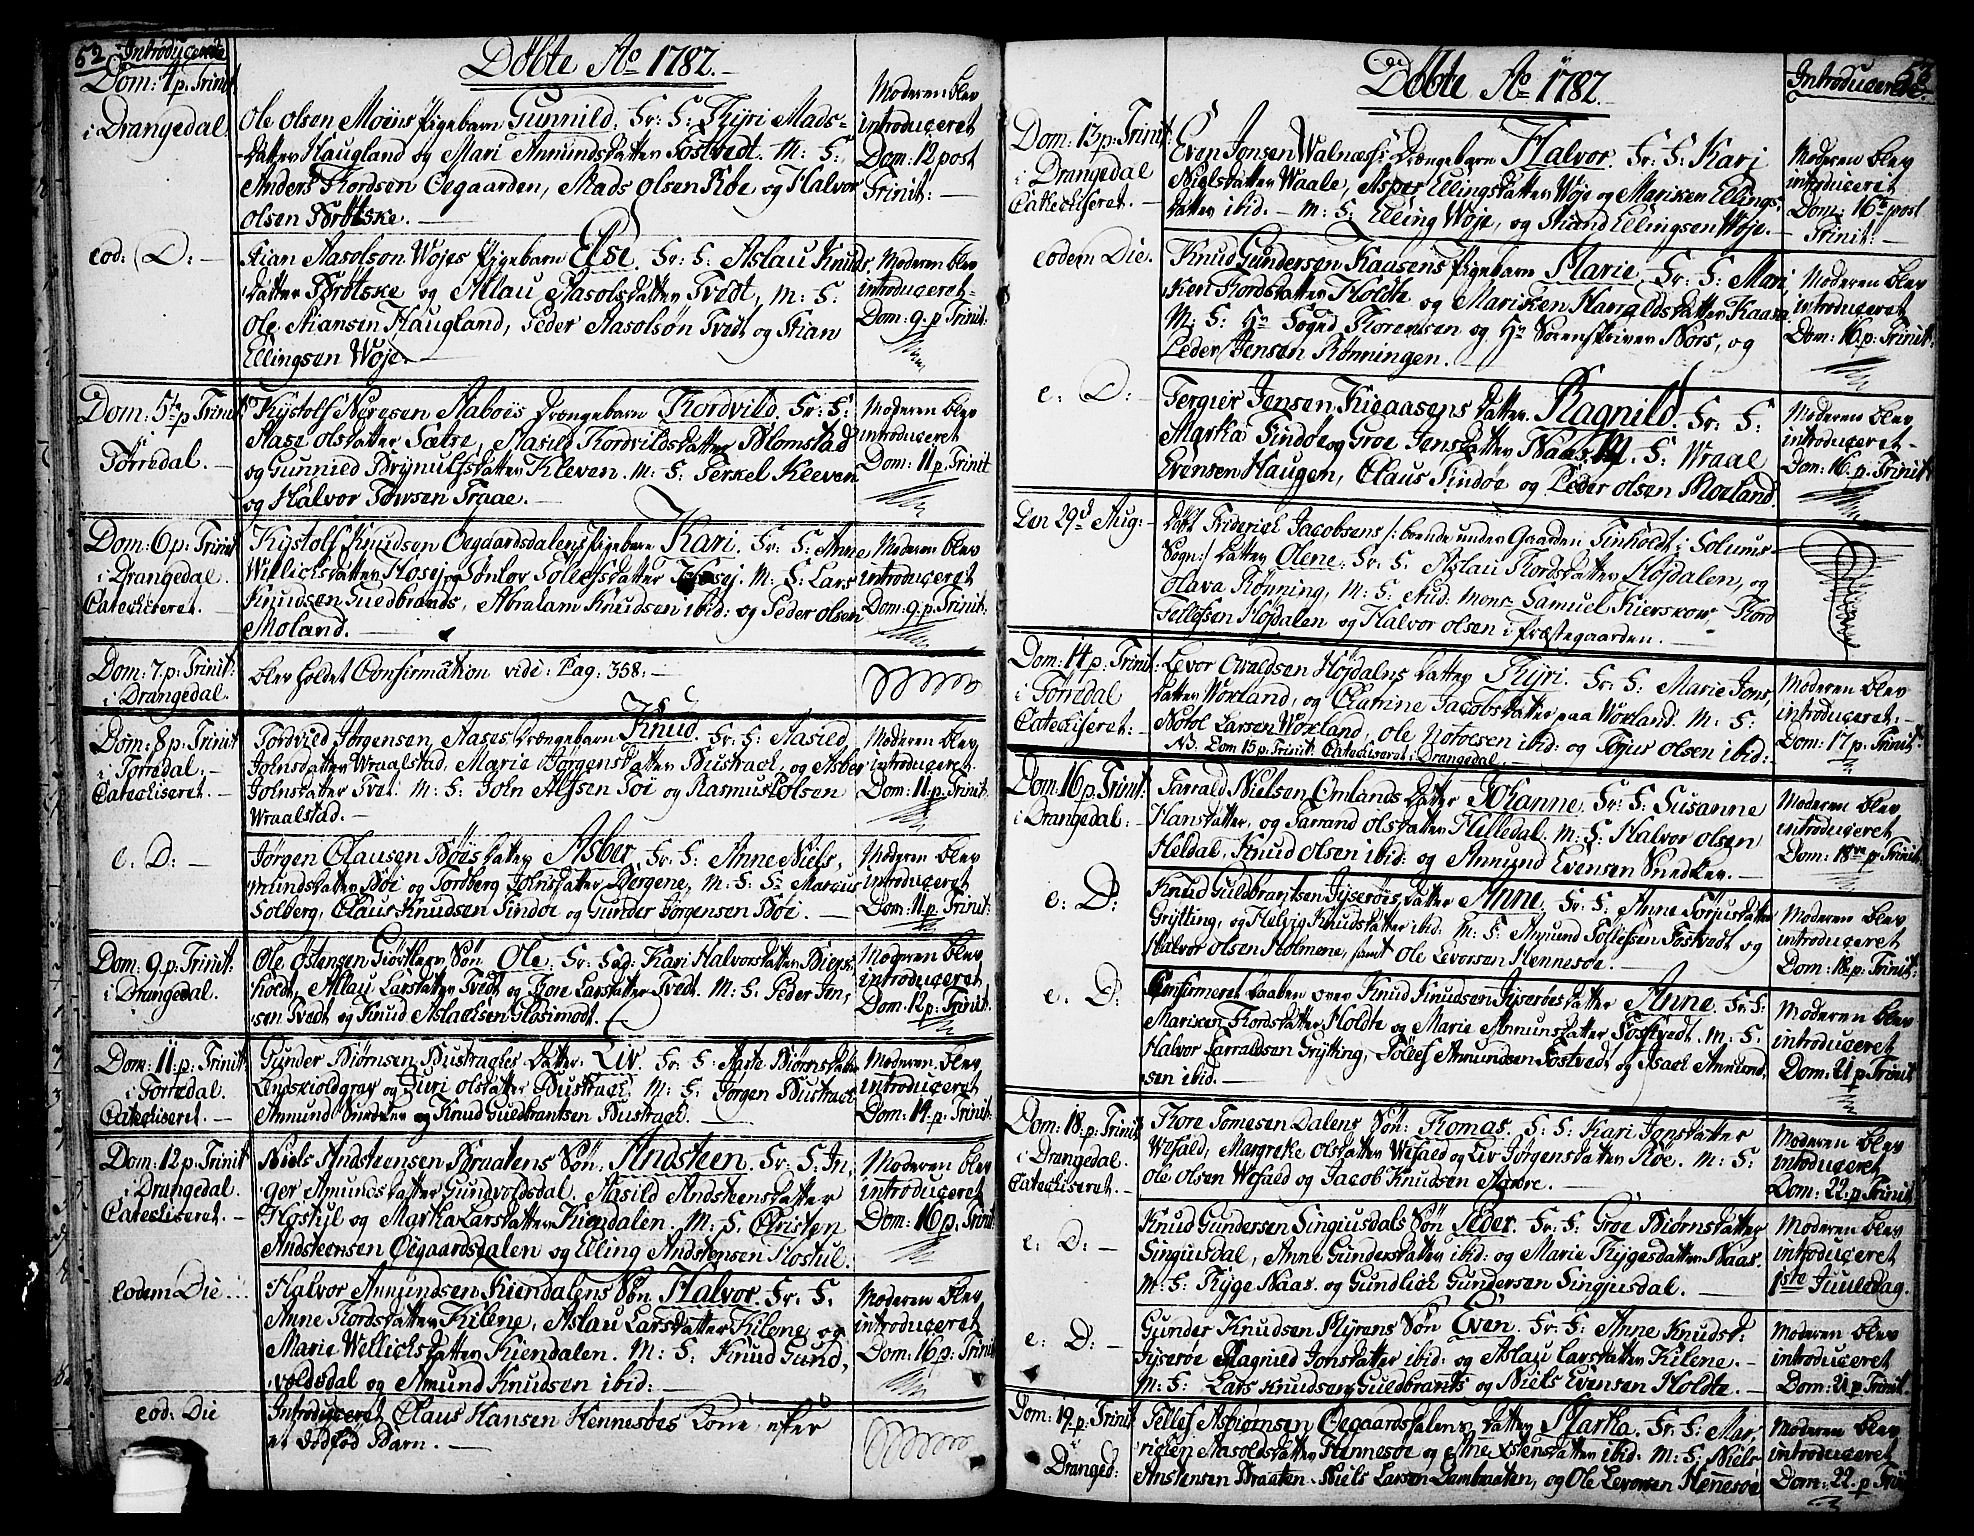 52 Introducerede
Døbte Ao 1782.
Dom: 4 p: Trinit
i Drangedal
Ole Olsen Moens Pigebarn Gunnild. Fr: F: Kyri Mads-
datter Haugland og Mari Anundsdatter Fostvedt. M: F:
Anders Tordsen Oegaarden, Mads Olsen Roe og Halvor
Olsen Brøtske.
Moderen blev
introduceret
Dom: 12 post
Trinit:
eod: D:
Kian Aasolson Wøjes Pigebarn Else. Fr: F: Aslau Knuds
datter Brøtske og Aslau Aasolsdatter Tvedt, M: F:
Ole Kiansen Haugland, Peder Aasolsøn Tvedt og Kian
Ellingsen Wøje.
Moderen blev
introduceret
Dom: 9. p Trinit:
Dom: 5te p Trinit
i
Tørredal.
Kystolf Neresen Aaboes Drængebarn Tordvild. Fr: F:
Aase Olsdatter Sætre, Aasild Tordvildsdatter Blomstad
og Gunnild Brynulfsdatter Kleven. M: F: Terkel Kleven
og Halvor Towsen Traae.
Moderen blev
introduceret
Dom: 11 p. Trinit
Dom: 6 p: Trinit
i Drangedal.
Catechiseret.
Kystolf Knudsen Oegaardsdalens Pigebarn Kari. Fr: F: Anne
Willichsdatter Hosej og Sønlov Sollefsdatter Hosej. M: F: Lars
Knudsen Guldbrands, Abraham Knudsen ibid: og Peder Olsen
Moland.
Moderen blev
introduceret
Dom: 9. p: Trinit:
Dom: 7 p: Trinit:
i Drangedal.
blev holdet Confirmation vide: Pag: 358.
Dom: 8 p: Trinit
i Tørredal.
Catechiseret.
Tordvild Jørgensen Aases Drængebarn Knud. Fr: F: Aasild
Johnsdatter Wraalstad, Marie Jørgensdatter Bustrach, og Asber
Johnsdatter Tvet. M: F: John Alfsen Tøi og Rasmus Olsen
Wraalstad.
Moderen blev
introduceret
Dom: 11. p: Trinit
e: D:
Jørgen Clausen Bøis datter Asber. Fr: F: Anne Niels,
Wrundsdatter Bøi og Tordberg Johnsdatter Bergene, M: F: Sr Marcus
Solberg, Claus Knudsen Sindøe og Gunder Jørgensen Bøi.
Moderen blev
introduceret
Dom: 11. p: Trinit:
Dom: 9. p: Trinit:
i Drangedal.
Ole Østensen Giørtlers Søn Ole. Fr: Fad: Kari Halvorsdatter Biers,
holdt, Aslau Larsdatter Tvedt og Tone Larsdatter Tvedt. M: F: Peder Jen,
sen Tvedt og Knud Aslachsen Glosimodt.
Moderen blev
introduceret
Dom: 12 p: Trinit
Dom: 11. p: Trinit
i Tørredal.
Catechiseret
Gunder Biørnsen Bustraches datter Liv. Fr: F: Aaste Biørnsdatter
Lindskioldgrav og Juri Olsdatter Bustrach. M: F: Jørgen Bustrach
Anmund Snedker og Knud Guldbrantsen Bustrach.
Moderen blev
introduceret
Dom: 14. p: Trinit:
Dom: 12 p: Trinit
i Drangedal.
Catechiseret.
Niels Andsteensen Braatens Søn Andsteen. Fr: F: In,
ger Amundsdatter Gundvoldsdal. Aasild Andsteensdatter
Flostul og Martha Larsdatter Kiendalen. M: F: Christen
Andsteensen Oegaardsdalen og Elling Andstensen Flostul.
Moderen blev
introduceret
Dom: 16 p: Trinit
eodem Die
Halvor Anmundsen Kiendalens Søn Halvor. Fr: F:
Anne Tordsdatter Kilene, Aslau Larsdatter Kilene, og
Marie Wellichsdatter Kiendalen. M: F: Knud Gund,
voldsdal og Amund Knudsen ibid:
Moderen blev
introduceret
Dom: 16 p: Trinit
eod: Die
Introduceret Claus Hansen Hennesøes Kone efter
et dødfød Barn.
Døbte Ao 1782.
Introducerede. 53
Dom: 13 p: Trinit:
i Drangedal
Catechiseret.
Even Jonsen Walnæss: Drængebarn Halvor. Fr: F: Kari
Nielsdatter Waale, Asper Ellingsdatter Wøje og Mariken Ellings,
datter ibid. M: F: Elling Wøje, og Kiand Ellingsen Wøje.
Moderen blev
introduceret
Dom: 16te post
Trinit:
eodem Die.
Knud Gundersen Kaasens Pigebarn Marie. Fr: F: Mari
ken Tordsdatter Holdte og Marisken Harraldsdatter Kaasa
M: F: Hr Fogd Florentsen og Hr Sorenskriver Nors, og
Peder Jensen Rønningen.
Moderen blev
introduceret
Dom: 16. p: Trinit:
e: D:
Tergier Jensen Kieaasens datter Ragnild. Fr: F:
Martha Sindøe og Groe Jensdatter Naas. M: F: Wraal
Evensen Haugen, Claus Sindøe og Peder Olsen Moeland
Moderen blev
introduceret
Dom: 16. p: Trinit:
Den 29d Aug:
Døbt Friderich Jacobsens /: boende under Gaarden Finholdt i Solums
Sogn :/ datter Olene: Fr: F: Aslau Tordsdatter Højdalen, og
Olava Rønning, M: F: Stud: Mons: Samuel Kierskow, Tord
Tellefsen Højdalen og Halvor Olsen i Præstegaarden.
Dom: 14 p: Trinit:
i Tørredal
Catechiseret.
Levor Ovaldsen Højdalns datter Kyri. Fr: F: Marie Jons,
datter Woxland, og Catrine Jacobsdatter paa Woxland. M: F:
Notol Larsen Woxland, Ole Notolsen ibid: og Torjus Olsen ibid:
NB. Dom 15 p: Trinit: Catechiseret i Drangedal.
Moderen blev
introduceret:
Dom: 17 p: Trinit:
Dom: 16 p: Trinit:
i Drangedal:
Tarrald Nielsen Omlands datter Johanne. Fr: F: Susanne
Hansdatter, og Tarrand Olsdatter Helledal. M: F: Halvor Olsen
Heldal, Knud Olsen ibid: og Anmund Evensen Snedker.
Moderen blev
introduceret
Dom: 18de p: Trinit:
e: D:
Knud Guldbrantsen Jyserøis datter Anne. Fr: F: Anne Torjusdatter
Grytting, og Helvig Knudsdatter ibid: M: F: Anmund Tollefsen Fostvedt og
Halvor Olsen Holmene, samt Ole Levorsen Hennesøe.
Moderen blev
introduceret
Dom: 18. p: Trinit:
e: D:
Confirmeret Daaben over Knud Knudsen Jyserøes datter Anne. Fr: F:
Marisken Tordsdatter Holdte og Marie Anmunsdatter Fostvedt. M: F.
Halvor Tarraldsen Grytting, Tollef Anmundsen Fostvedt og Isach Anmund,
sen ibid.
Moderen blev
introduceret
Dom: 21 p Trinit
Dom: 18. p: Trinit
i Drangedal.
Catechiseret.
Tore Tomesen Dalens Søn: Tomas. F: F: Kari Jonsdatter
Wefald, Margrete Olsdatter Wefald og Liv Jørgensdatter Roe. M: F:
Ole Olsen Wefald og Jacob Knudsen Aarøe.
Moderen blev
introduceret
Dom: 22. p: Trinit
e: D:
Knud Gundersen Singiusdals Søn Peder. Fr: F: Groe Biørnsdatter
Singiusdal, Anne Gundersdatter ibid: og Marie Tygesdatter Naas.
M: F: Tyge Naas. og Gundlich Gundersen Singjusdal.
Moderen blev
introduceret
1ste Juuledag.
e: D:
Gunder Knudsen Myrens Søn Even. Fr: F: Anne Knudsd:
Jyserøe Ragnild Jonsdatter ibid: og Aslau Larsdatter Kilene.
M: F: Lars Knudsen Guldbrants og Niels Evensen Holdte.
Moderen blev
introduceret
Dom: 21 p Trinit.
Dom: 19. p: Trinit
i
Dranged:
Tellef Asbiørnsen Oegaardsdalens datter Martha. Fr: F: Mar,
richen Aasoldsdatter Hennesøe og Anne Østensdatter ibid: M: F: Niels
Anstensen Braaten. Niels Larsen Dambraaten, og Ole Levorsen Hennesøe
Moderen blev
introduceret
Dom: 22. p Trinit